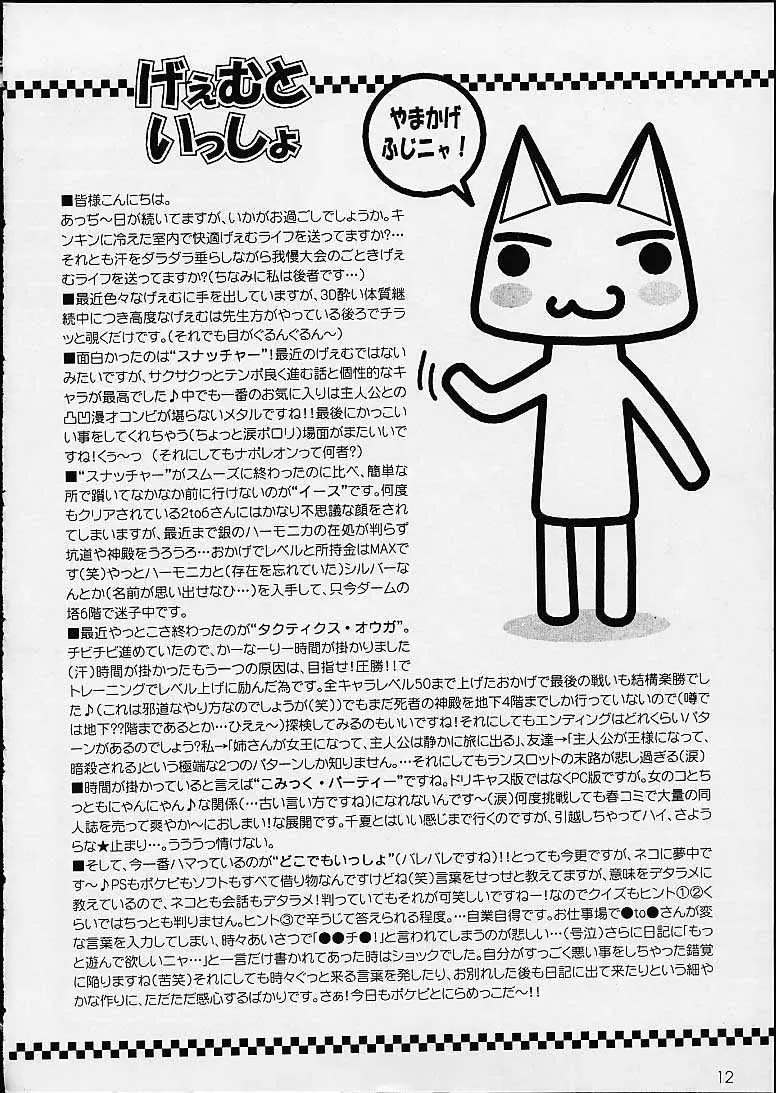 げぇむと
いっしょ
やまかげ
ふじニャ！
■皆様こんにちは。
あっぢ〜日が続いてますが、いかがお過ごしでしょうか。キ
ンキンに冷えた室内で快適げぇむライフを送ってますか?…
それとも汗をダラダラ垂らしながら我慢大会のごときげぇ
むライフを送ってますか?(ちなみに私は後者です…)
■最近色々なげぇむに手を出していますが、3D酔い体質継
続中につき高度なげぇむは先生方がやっている後ろでチラ
ッと覗くだけです。(それでも目がぐるんぐるん〜)
■面白かったのは“スナッチャー”!最近のげぇむではない
みたいですが、サクサクっとテンポ良く進む話と個性的なキ
ャラが最高でした♪中でも一番のお気に入りは主人公との
凸凹漫才コンビが堪らないメタルですね!!最後にかっこい
い事をしてくれちゃう(ちょっと涙ポロリ)場面がまたいいで
すね!くぅ〜っ (それにしてもナポレオンって何者?)
■“スナッチャー”がスムーズに終わったのに比べ、簡単な
所で躓いてなかなか前に行けないのが“イース”です。何度
もクリアされている2to6さんにはかなり不思議な顔をされ
てしまいますが、最近まで銀のハーモニカの在処が判らず
坑道や神殿をうろうろ…おかげでレベルと所持金はMAXで
す(笑)やっとハーモニカと(存在を忘れていた)シルバーな
んとか(名前が思い出せなひ…)を入手して、只今ダームの
塔6階で迷子中です。
■最近やっとこさ終わったのが“タクティクス・オウガ”。
チビチビ進めていたので、かーなーりー時間が掛かりました
(汗)時間が掛かったもう一つの原因は、目指せ!圧勝!!で
トレーニングでレベル上げに励んだ為です。全キャラレベル50まで上げたおかげで最後の戦いも結構楽勝でし
た♪(これは邪道なやり方なのでしょうが(笑))でもまだ死者の神殿を地下4階までしか行っていないので(噂で
は地下??階まであるとか…ひえぇ〜)探検してみるのもいいですね!それにしてもエンディングはどれくらいパタ
ーンがあるのでしょう?私→「姉さんが女王になって、主人公は静かに旅に出る」、友達→「主人公が王様になって、
暗殺される」という極端な2つのパターンしか知りません。…それにしてもランスロットの末路が悲し過ぎる(涙)
■時間が掛かっていると言えば“こみっく・パーティー”ですね。ドリキャス版ではなくPC版ですが。女のコとちっ
ともにゃんにゃん♪な関係(…古い言い方ですね)になれないんです〜(涙)何度挑戦しても春コミで大量の同
人誌を売って爽やか〜におしまい!な展開です。千夏とはいい感じまで行くのですが、引越しちゃってハイ、さよう
らな★止まり…。うううっ情けない。
■そして、今一番ハマっているのが“どこでもいっしょ”(バレバレですね)!!とっても今更ですが、ネコに夢中で
す〜♪PSもポケピもソフトもすべて借り物なんですけどね(笑)言葉をせっせと教えてますが、意味をデタラメに
教えているので、ネコとも会話もデタラメ!判っていてもそれが可笑しいですねー!なのでクイズもヒント①②く
らいではちっとも判りません。ヒント③で辛うじて答えられる程度。…自業自得です。お仕事場で●to●さんが変
な言葉を入力してしまい、時々あいさつで「●●チ●!」と言われてしまうのが悲しい…(号泣)さらに日記に「もっ
と遊んで欲しいニャ…」と一言だけ書かれてあった時はショックでした。自分がすっごく悪い事をしちゃった錯覚
に陥りますね(苦笑)それにしても時々ぐっと来る言葉を発したり、お別れした後も日記に出て来たりという細や
かな作りに、ただただ感心するばかりです。さぁ!今日もポケピとにらめっこだ〜!!
12